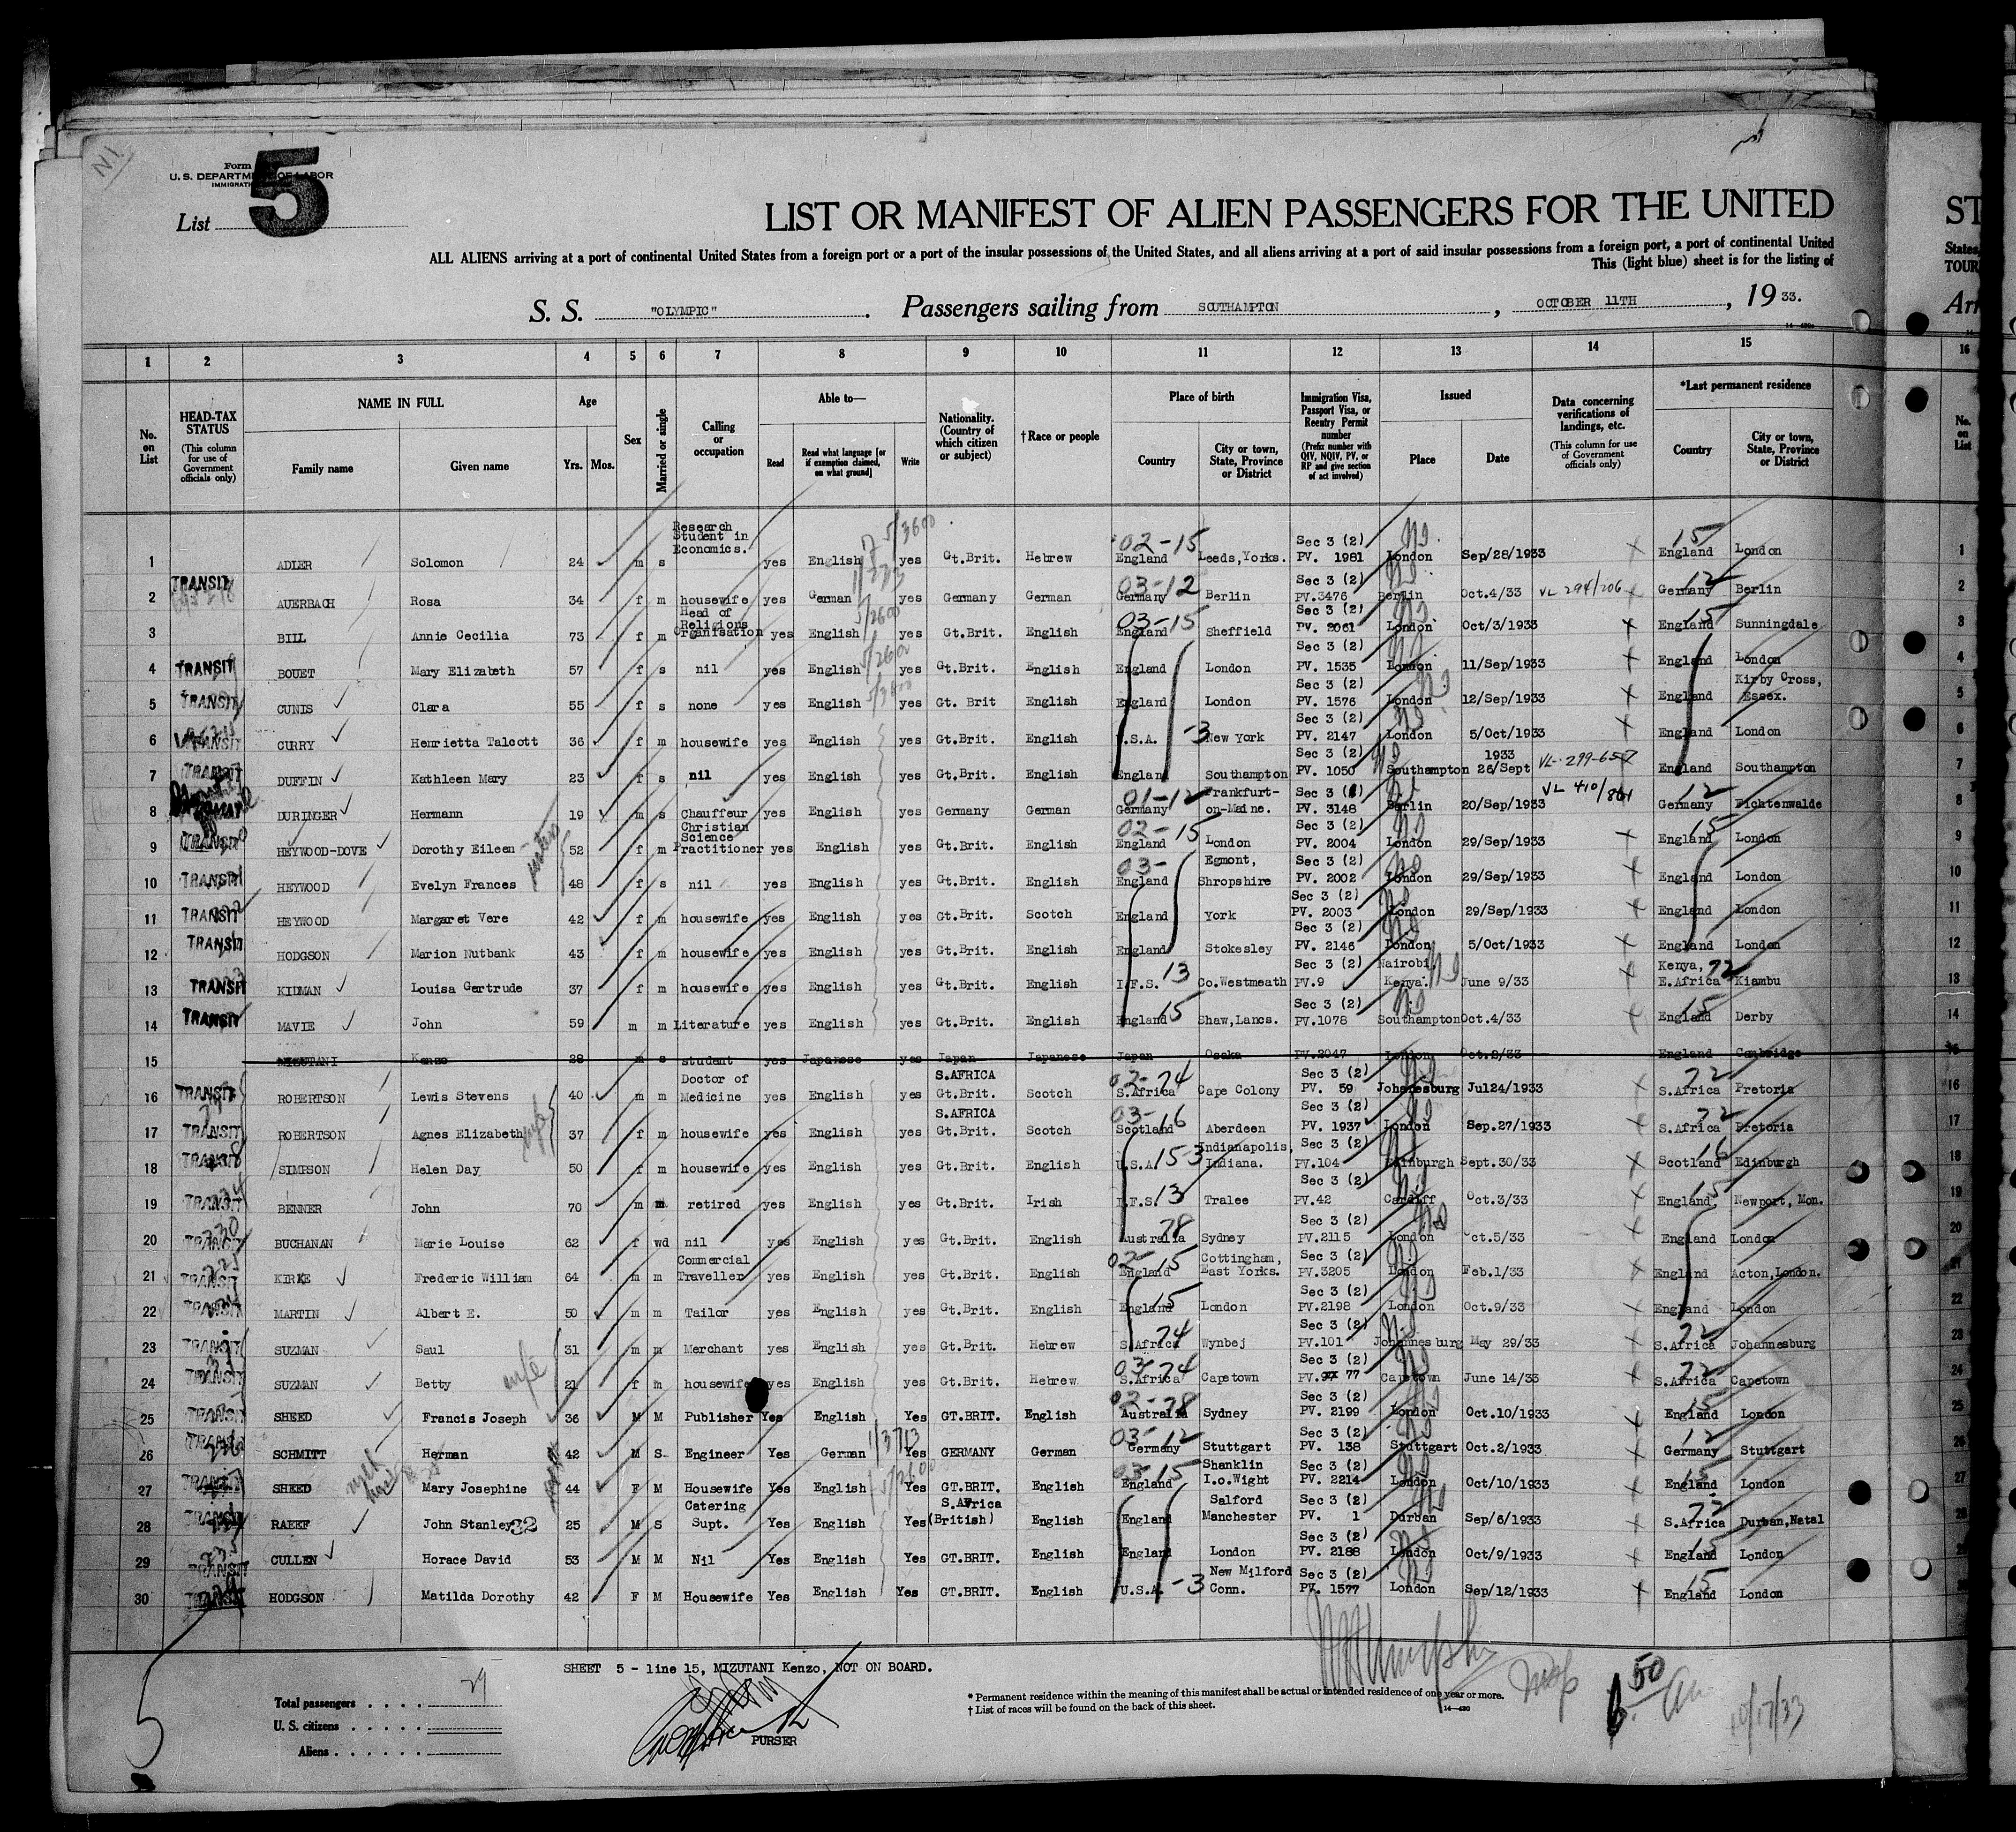 N1
Form
U. S. DEPARTMENT OF LABOR
IMMIGRATION
List 5
LIST OR MANIFEST OF ALIEN PASSENGERS FOR THE UNITED
ALL ALIENS arriving at a port of continental United States from a foreign port or a port of the insular possessions of the United States, and all aliens arriving at a port of said insular possessions from a foreign port, a port of continental United
This (light blue) sheet is for the listing of
S. S. "OLYMPIC". Passengers sailing from SOUTHAMPTON, OCTOBER 11TH, 1933.
1 2 3 4 5 6 7 8 9 10 11 12 13 14 15 16
No. on List
HEAD-TAX STATUS (This column for use of Government officials only)
NAME IN FULL Family name Given name
Age Yrs. Mos.
Sex
Married or single
Calling or occupation
Able to— Read Read what language [or if exemption claimed, on what ground] Write
Nationality. (Country of which citizen or subject)
†Race or people
Place of birth Country City or town, State, Province or District
Immigration Visa, Passport Visa, or Reentry Permit number (Prefix number with QIV, NQIV, PV, or RP and give section of act involved)
Issued Place Date
Data concerning verifications of landings, etc. (This column for use of Government officials only)
*Last permanent residence Country City or town, State, Province or District
1 ADLER Solomon 24 m s Research Student in Economics. yes English yes Gt.Brit. Hebrew 02-15 England Leeds, Yorks. Sec 3 (2) PV. 1981 London Sep/28/1933 15 England London 1
2 TRANSIT AUERBACH Rosa 34 f m housewife yes German yes Germany German 03-12 Germany Berlin Sec 3 (2) PV.3476 Berlin Oct.4/33 VL 294/206 12 Germany Berlin 2
3 BILL Annie Cecilia 73 f m Head of Religions Organisation yes English yes Gt.Brit. English 03-15 England Sheffield Sec 3 (2) PV. 2061 London Oct/3/1933 15 England Sunningdale 3
4 TRANSIT BOUET Mary Elizabeth 57 f s nil yes English yes Gt.Brit. English England London Sec 3 (2) PV. 1535 London 11/Sep/1933 England London 4
5 TRANSIT CUNIS Clara 55 f s none yes English yes Gt. Brit English England London Sec 3 (2) PV. 1576 London 12/Sep/1933 England Kirby Cross, Essex. 5
6 TRANSIT CURRY Henrietta Talcott 36 f m housewife yes English yes Gt.Brit. English U.S.A. -3 New York Sec 3 (2) PV. 2147 London 5/Oct/1933 England London 6
7 TRANSIT DUFFIN Kathleen Mary 23 f s nil yes English yes Gt.Brit. English England Southampton Sec 3 (2) PV. 1050 Southampton 26/Sept 1933 England Southampton 7
8 DURINGER Hermann 19 m s Chauffeur yes English yes Germany German 01-12 Germany Frankfurt-on-Maine. PV. 3148 Berlin 20/Sep/1933 12 Germany Fichtenwalde 8
9 TRANSIT HEYWOOD-DOVE Dorothy Eileen 52 f m Christian Science Practitioner yes English yes Gt.Brit. English 02-15 England London Sec 3 (2) PV. 2004 London 29/Sep/1933 15 England London 9
10 TRANSIT HEYWOOD Evelyn Frances sisters 48 f s nil yes English yes Gt.Brit. English 03- England Egmont, Shropshire Sec 3 (2) PV. 2002 London 29/Sep/1933 England London 10
11 TRANSIT HEYWOOD Margaret Vere 42 f m housewife yes English yes Gt.Brit. Scotch England York Sec 3 (2) PV. 2003 London 29/Sep/1933 England London 11
12 TRANSIT HODGSON Marion Nutbank 43 f m housewife yes English yes Gt.Brit. English England Stokesley Sec 3 (2) PV. 2146 London 5/Oct/1933 England London 12
13 TRANSIT KIDMAN Louisa Gertrude 37 f m housewife yes English yes Gt.Brit. English I.F.S. 13 Co.Westmeath Sec 3 (2) PV.9 Nairobi Kenya. June 9/33 Kenya, E.Africa 72 Kiambu 13
14 TRANSIT MAVIE John 59 m m Literature yes English yes Gt.Brit. English England 15 Shaw, Lancs. Sec 3 (2) PV.1078 Southampton Oct.4/33 15 England Derby 14
15 MIZUTANI Kenzo 28 m s student yes Japanese yes Japan Japanese Japan Osaka PV.2047 London Oct.2/33 England Cambridge 15
16 TRANSIT ROBERTSON Lewis Stevens 40 m m Doctor of Medicine yes English yes S.AFRICA Gt.Brit. Scotch 02-74 S.Africa Cape Colony Sec 3 (2) PV. 59 Johanesburg Jul24/1933 72 S.Africa Pretoria 16
17 TRANSIT ROBERTSON Agnes Elizabeth wife 37 f m housewife yes English yes S.AFRICA Gt.Brit. Scotch 03-16 Scotland Aberdeen Sec 3 (2) PV. 1937 London Sep.27/1933 72 S.Africa Pretoria 17
18 TRANSIT SIMPSON Helen Day 50 f m housewife yes English yes Gt.Brit. English U.S.A. 15-3 Indianapolis, Indiana. Sec 3 (2) PV.104 Edinburgh Sept.30/33 16 Scotland Edinburgh 18
19 TRANSIT BENNER John 70 m m retired yes English yes Gt.Brit. Irish I.F.S. 13 Tralee Sec 3 (2) PV.42 Cardiff Oct.3/33 15 England, Newport, Mon. 19
20 TRANSIT BUCHANAN Marie Louise 62 f wd nil yes English yes Gt.Brit. English 78 Australia Sydney Sec 3 (2) PV.2115 London Oct.5/33 England London 20
21 TRANSIT KIRKE Frederic William 64 m m Commercial Traveller yes English yes Gt.Brit. English 02-15 England Cottingham, East Yorks. Sec 3 (2) PV.3205 London Feb.1/33 England Acton, London. 21
22 TRANSIT MARTIN Albert E. 50 m m Tailor yes English yes Gt.Brit. English England 15 London Sec 3 (2) PV.2198 London Oct.9/33 England London 22
23 TRANSIT SUZMAN Saul 31 m m Merchant yes English yes Gt.Brit. Hebrew S.Africa 74 Wynbej Sec 3 (2) PV.101 Johannesburg May 29/33 72 S.Africa Johannesburg 23
24 TRANSIT SUZMAN Betty wife 21 f m housewife yes English yes Gt.Brit. Hebrew 03-74 S.Africa Capetown Sec 3 (2) PV. 77 Capetown June 14/33 72 S.Africa Capetown 24
25 TRANSIT SHEED Francis Joseph 36 M M Publisher Yes English Yes GT.BRIT. English 02-78 Australia Sydney Sec 3 (2) PV. 2199 London Oct.10/1933 15 England London 25
26 TRANSIT SCHMITT Herman 42 M S Engineer Yes German Yes GERMANY German 03-12 Germany Stuttgart Sec 3 (2) PV. 138 Stuttgart Oct.2/1933 12 Germany Stuttgart 26
27 TRANSIT SHEED Mary Josephine 44 F M Housewife Yes English Yes GT.BRIT. English 03-15 England Shanklin I.o.Wight Sec 3 (2) PV. 2214 London Oct/10/1933 15 England London 27
28 TRANSIT RAEEF John Stanley 32 25 M S Catering Supt. Yes English Yes S.Africa (British) English England Salford Manchester Sec 3 (2) PV. 1 Durban Sep/6/1933 72 S.Africa Durban, Natal 28
29 TRANSIT CULLEN Horace David 53 M M Nil Yes English Yes GT.BRIT. English England London Sec 3 (2) PV. 2188 London Oct/9/1933 15 England London
30 TRANSIT HODGSON Matilda Dorothy 42 F M Housewife Yes English Yes GT.BRIT. English U.S.A. -3 New Milford Conn. Sec 3 (2) PV. 1577 London Sep/12/1933 15 England London
SHEET 5 - line 15, MIZUTANI Kenzo, NOT ON BOARD.
Total passengers . . . . 29
U. S. citizens . . . .
Aliens . . . . . .
PURSER
* Permanent residence within the meaning of this manifest shall be actual or intended residence of one year or more.
† List of races will be found on the back of this sheet.
14—430
50
10/17/33
5
ST
States,
TOUR
Arr